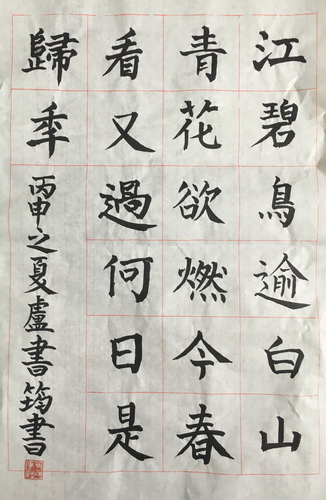 江碧鳥逾白山
青花欲燃今春
看又過何日是
歸年
丙申之夏盧書筠書